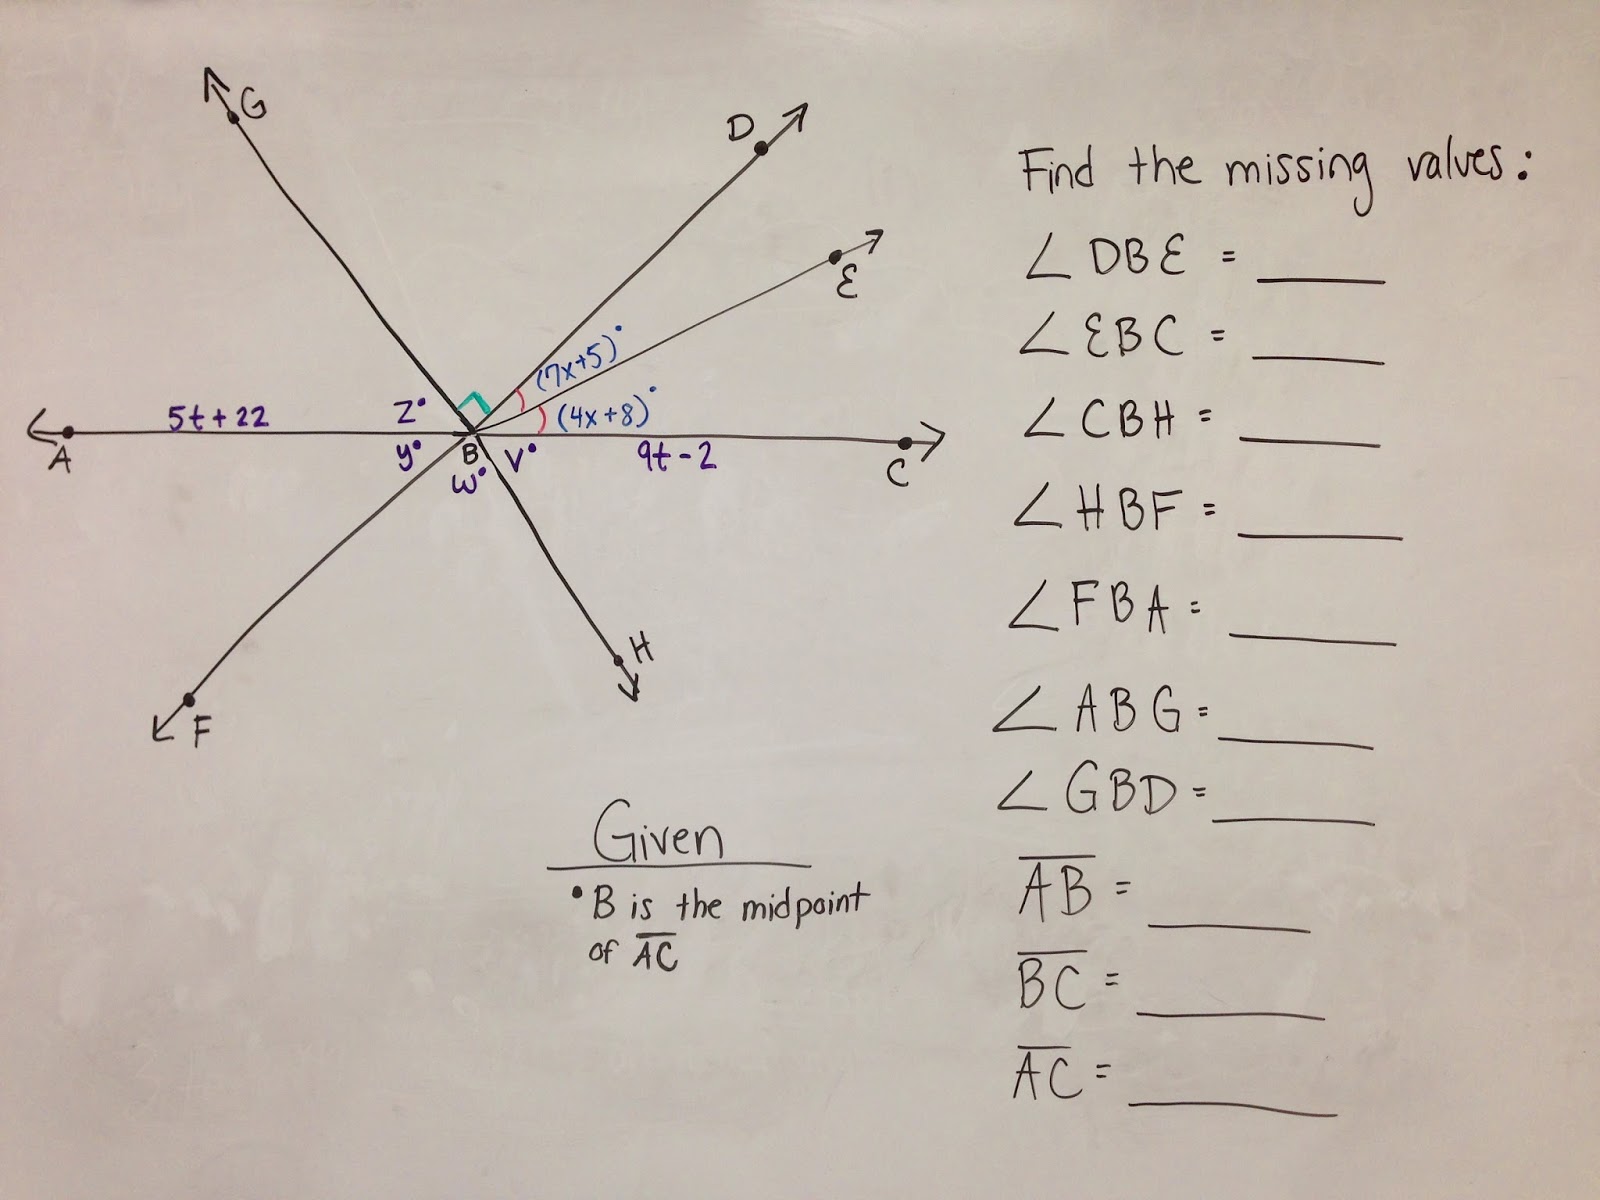 G
D
E
(7x+5)°
5t+22
Z°
(4x+8)°
A
y°
B
V°
9t-2
C
W°
H
F
Given
• B is the midpoint
of A͞C͞
Find the missing values:
∠DBE = ____
∠EBC = ____
∠CBH = ____
∠HBF = ____
∠FBA = ____
∠ABG = ____
∠GBD = ____
A͞B͞ = ____
B͞C͞ = ____
A͞C͞ = ____